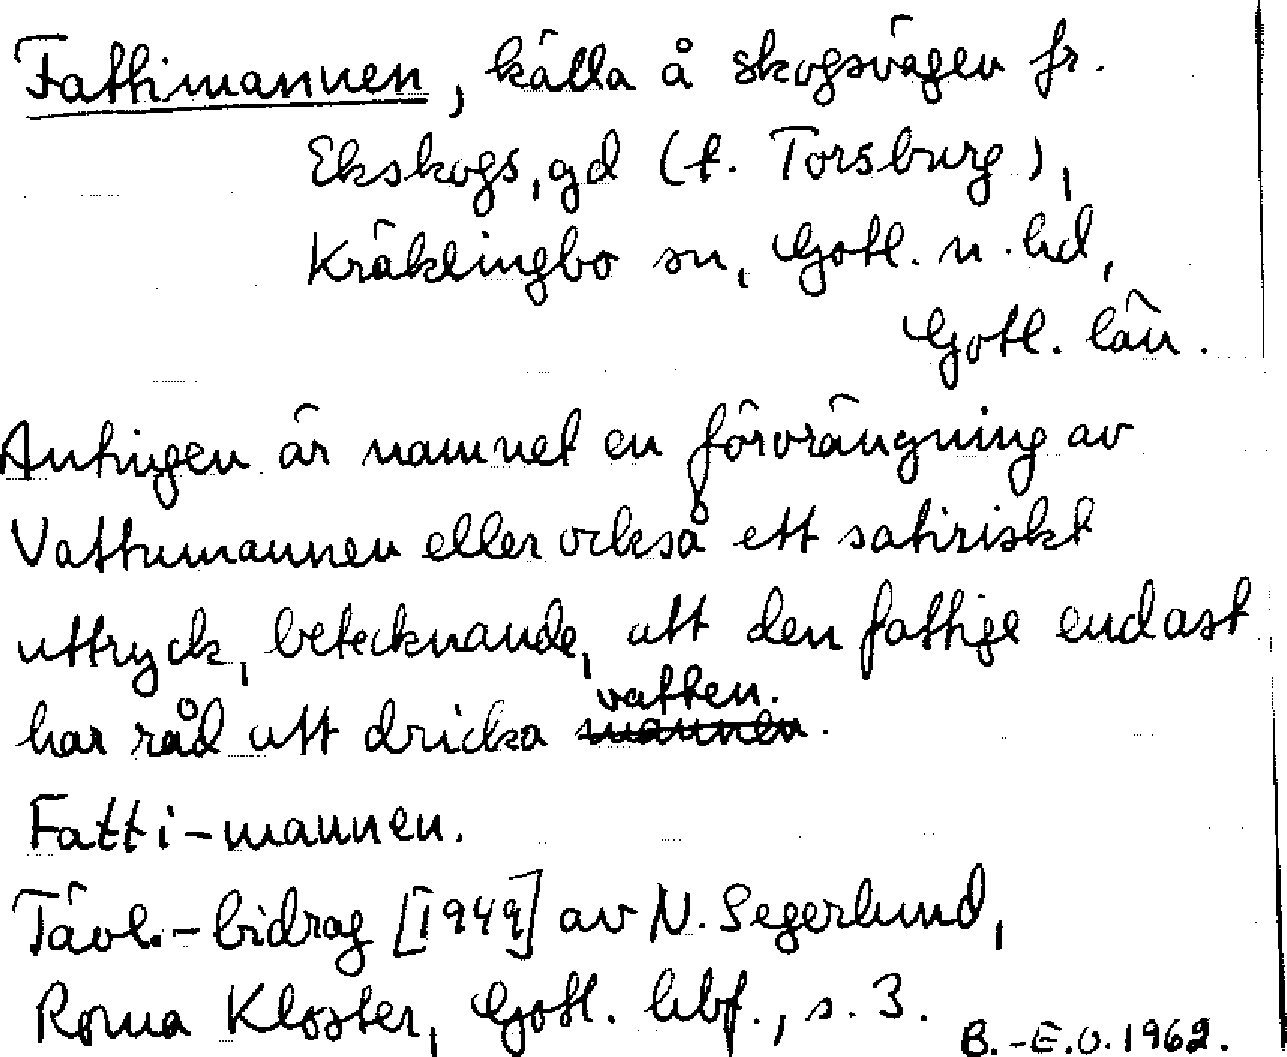 Fattimannen, källa å skogsvägen fr.
Ekskogs, gd (t. Torsburg),
Kräklingbo sn, Gotl. n. hd,
Gotl. län.
Antingen är namnet en förvrängning av
Vattumannen eller också ett satiriskt
uttryck, betecknande, att den fattige endast
har råd att dricka mannen vatten.
Fatti-mannen.
Tävl.-bidrag [1949] av N. Segerlund,
Roma Kloster, Gotl. hbf., s. 3.
B.-E.O. 1962.